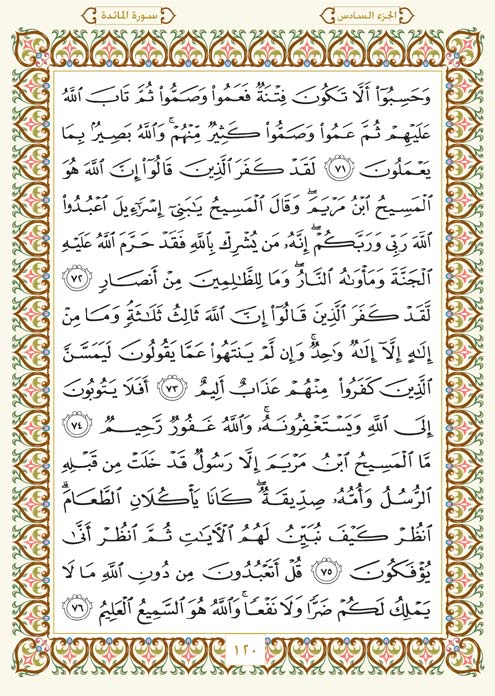 الجزء السادس
سورة المائدة
وَحَسِبُوٓا۟ أَلَّا تَكُونَ فِتْنَةٌ فَعَمُوا۟ وَصَمُّوا۟ ثُمَّ تَابَ ٱللَّهُ
عَلَيْهِمْ ثُمَّ عَمُوا۟ وَصَمُّوا۟ كَثِيرٌ مِّنْهُمْ ۚ وَٱللَّهُ بَصِيرٌۢ بِمَا
يَعْمَلُونَ ٧١ لَقَدْ كَفَرَ ٱلَّذِينَ قَالُوٓا۟ إِنَّ ٱللَّهَ هُوَ
ٱلْمَسِيحُ ٱبْنُ مَرْيَمَ ۖ وَقَالَ ٱلْمَسِيحُ يَـٰبَنِىٓ إِسْرَٰٓءِيلَ ٱعْبُدُوا۟
ٱللَّهَ رَبِّى وَرَبَّكُمْ ۖ إِنَّهُۥ مَن يُشْرِكْ بِٱللَّهِ فَقَدْ حَرَّمَ ٱللَّهُ عَلَيْهِ
ٱلْجَنَّةَ وَمَأْوَىٰهُ ٱلنَّارُ ۖ وَمَا لِلظَّـٰلِمِينَ مِنْ أَنصَارٍ ٧٢
لَّقَدْ كَفَرَ ٱلَّذِينَ قَالُوٓا۟ إِنَّ ٱللَّهَ ثَالِثُ ثَلَـٰثَةٍ ۘ وَمَا مِنْ
إِلَـٰهٍ إِلَّآ إِلَـٰهٌ وَٰحِدٌ ۚ وَإِن لَّمْ يَنتَهُوا۟ عَمَّا يَقُولُونَ لَيَمَسَّنَّ
ٱلَّذِينَ كَفَرُوا۟ مِنْهُمْ عَذَابٌ أَلِيمٌ ٧٣ أَفَلَا يَتُوبُونَ
إِلَى ٱللَّهِ وَيَسْتَغْفِرُونَهُۥ ۚ وَٱللَّهُ غَفُورٌ رَّحِيمٌ ٧٤
مَّا ٱلْمَسِيحُ ٱبْنُ مَرْيَمَ إِلَّا رَسُولٌ قَدْ خَلَتْ مِن قَبْلِهِ
ٱلرُّسُلُ وَأُمُّهُۥ صِدِّيقَةٌ ۖ كَانَا يَأْكُلَانِ ٱلطَّعَامَ ۗ
ٱنظُرْ كَيْفَ نُبَيِّنُ لَهُمُ ٱلْـَٔايَـٰتِ ثُمَّ ٱنظُرْ أَنَّىٰ
يُؤْفَكُونَ ٧٥ قُلْ أَتَعْبُدُونَ مِن دُونِ ٱللَّهِ مَا لَا
يَمْلِكُ لَكُمْ ضَرًّا وَلَا نَفْعًا ۚ وَٱللَّهُ هُوَ ٱلسَّمِيعُ ٱلْعَلِيمُ ٧٦
١٢٠